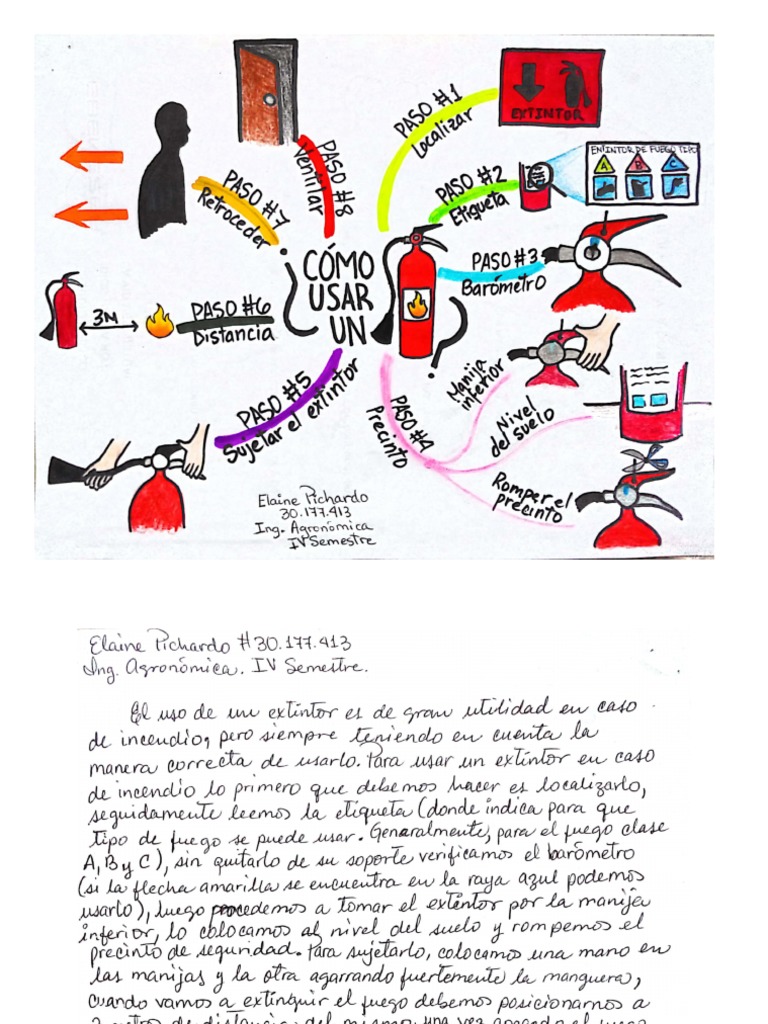 PASO #1
Localizar
EXTINTOR
PASO #2
Etiqueta
EXTINTOR DE FUEGO TIPO
A B C
PASO #3
Barómetro
PASO #4
Precinto
Manija
inferior
Nivel
del suelo
Romper el
precinto
PASO #5
Sujetar el extintor
PASO #6
Distancia
3M
PASO #7
Retroceder
PASO #8
Ventilar
¿CÓMO
USAR
UN
?
Elaine Pichardo
30.177.413
Ing. Agronómica
IV Semestre
Elaine Pichardo #30.177.413
Ing. Agronómica. IV Semestre.
El uso de un extintor es de gran utilidad en caso
de incendio, pero siempre teniendo en cuenta la
manera correcta de usarlo. Para usar un extintor en caso
de incendio lo primero que debemos hacer es localizarlo,
seguidamente leemos la etiqueta (donde indica para que
tipo de fuego se puede usar. Genaralmente, para el fuego clase
A, B y C), sin quitarlo de su soporte verificamos el barómetro
(si la flecha amarilla se encuentra en la raya azul podemos
usarlo), luego procedemos a tomar el extintor por la manija
inferior, lo colocamos al nivel del suelo y rompemos el
precinto de seguridad. Para sujetarlo, colocamos una mano en
las manijas y la otra agarrando fuertemente la manguera,
cuando vamos a extinguir el fuego debemos posicionarnos a